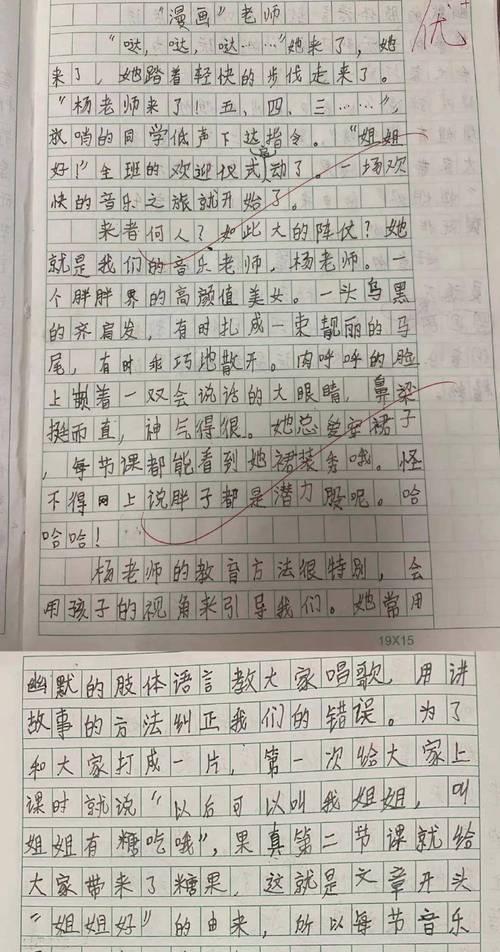 “漫画”老师
优+
“哒，哒，哒……”她来了，她
来了，她踏着轻快的步伐走来了。
“杨老师来了！五、四、三……”，
放哨的同学低声下达指令。“姐姐
好！”全班的欢迎仪式启动了。一场欢
快的音乐之旅就开始了。
来者何人？如此大的阵仗？她
就是我们的音乐老师，杨老师。一
个胖胖界的高颜值美女。一头乌黑
的齐肩发，有时扎成一束靓丽的马
尾，有时乖巧地散开。肉呼呼的脸
上嵌着一双会说话的大眼睛，鼻梁
挺而直，神气得很。她总爱穿裙子
，每节课都能看到她裙装秀哦。怪
不得网上说胖子都是潜力股呢。哈
哈哈！
杨老师的教育方法很特别，会
用孩子的视角来引导我们。她常用
19X15
幽默的肢体语言教大家唱歌，用讲
故事的方法纠正我们的错误。为了
和大家打成一片，第一次给大家上
课时就说“以后可以叫我姐姐，叫
姐姐有糖吃哦”，果真第二节课就给
大家带来了糖果，这就是文章开头
“姐姐好”的由来，所以每节音乐